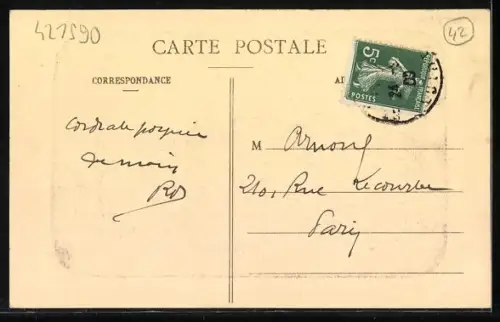 421590
42
CARTE POSTALE
CORRESPONDANCE
AD
5c
POSTES
Cordiale poignée
de main
M Arnould
210, Rue Lecourbe
Paris